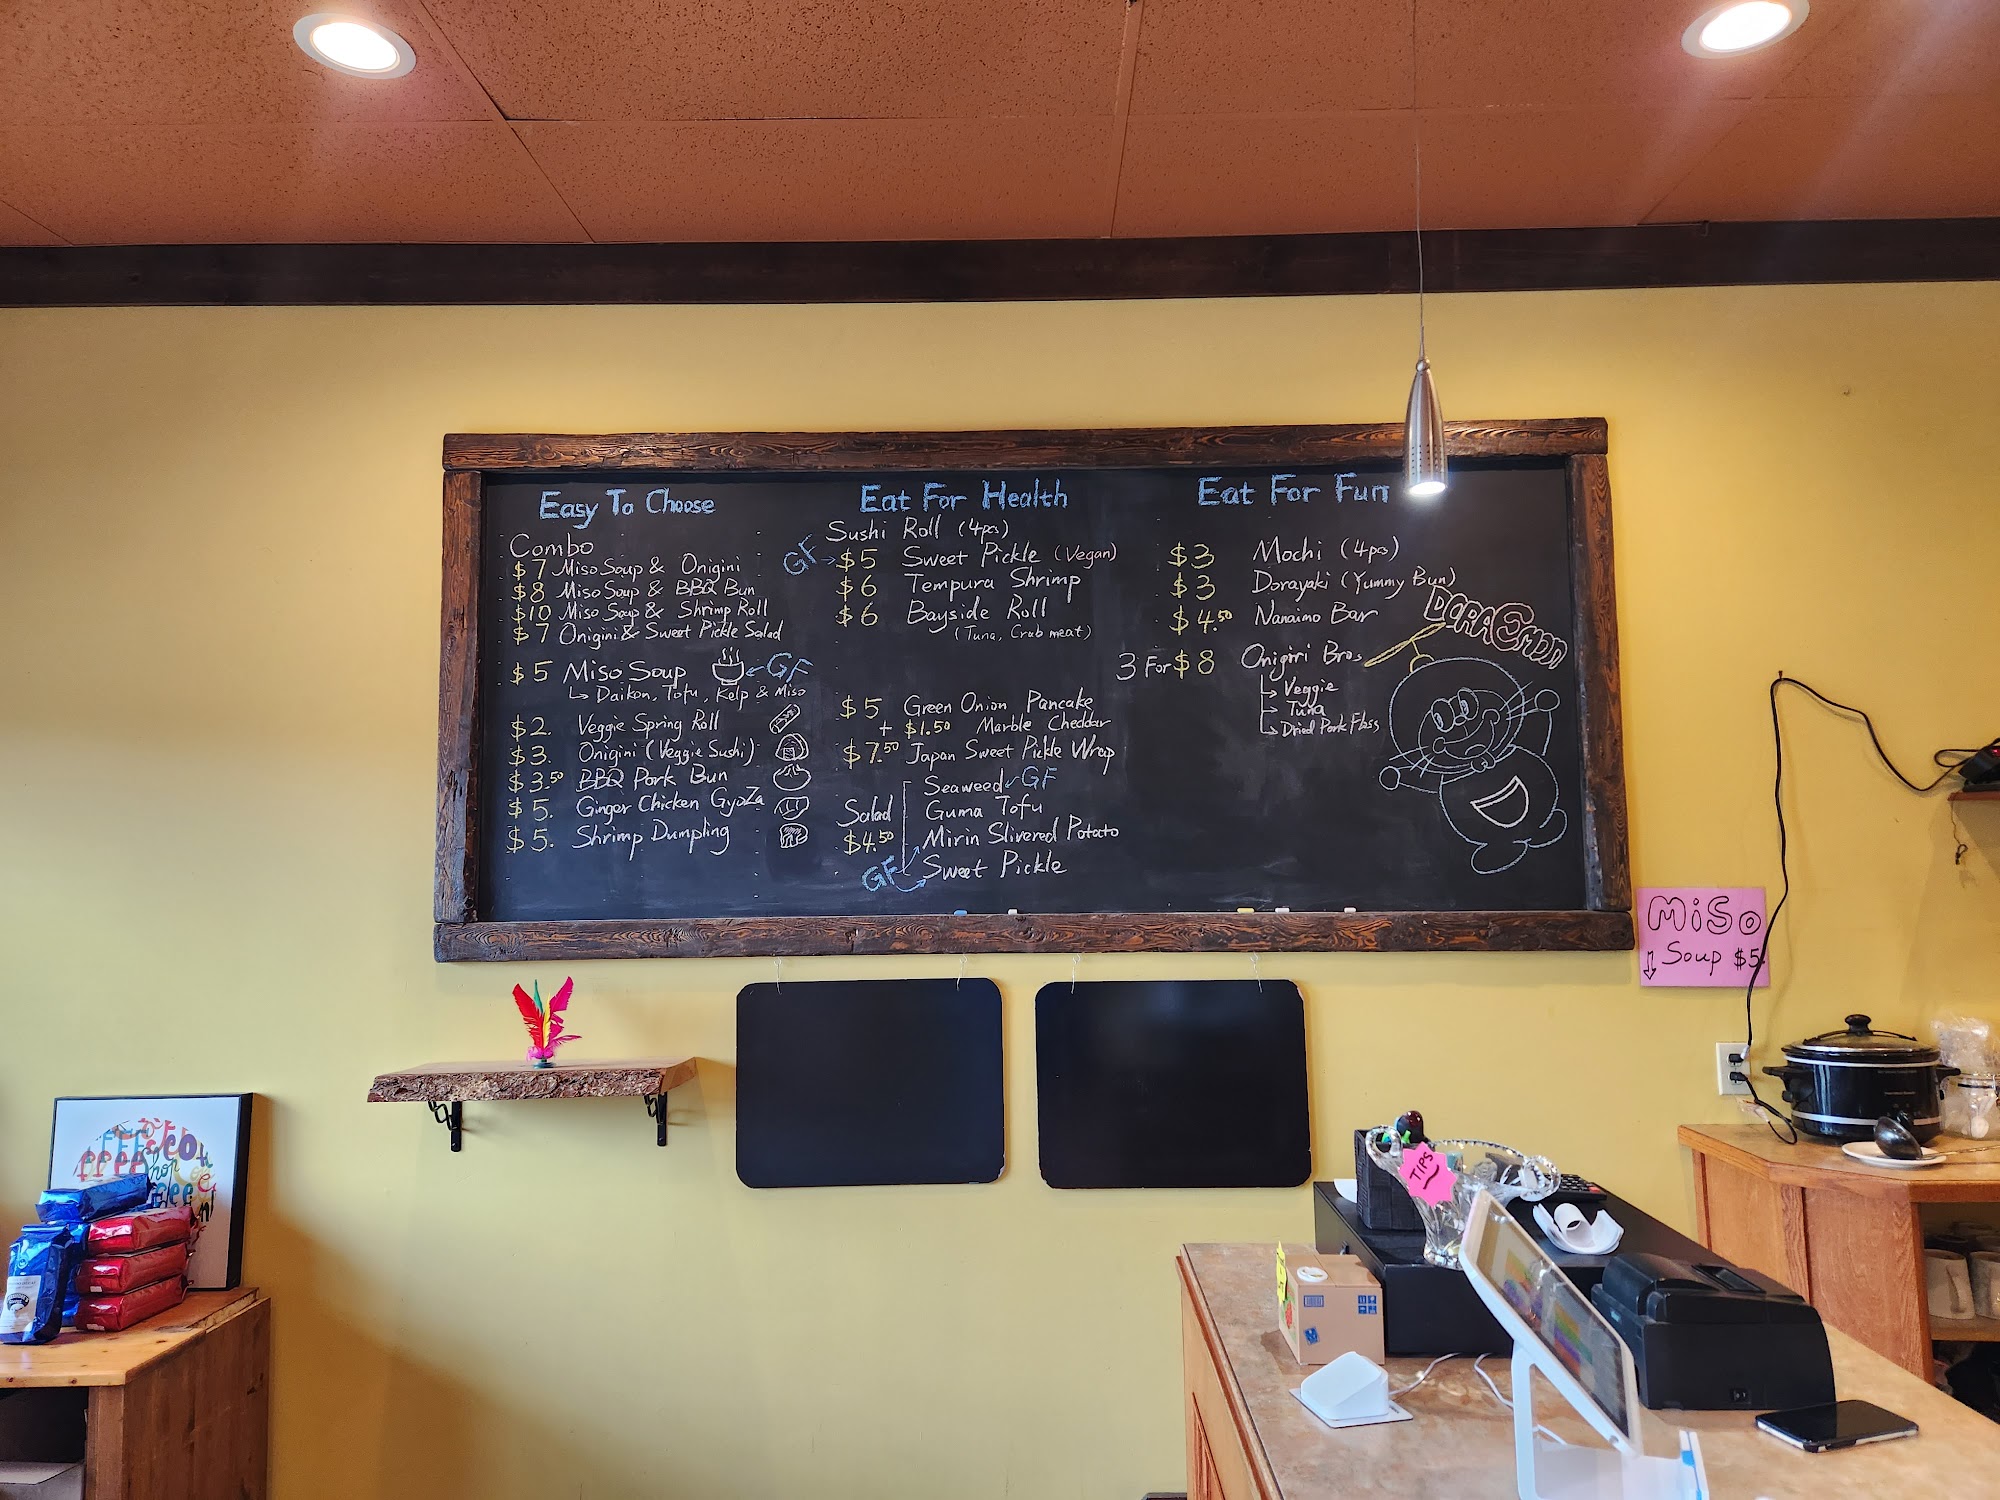 Easy To Choose
Combo
$7 Miso Soup & Onigini
$8 Miso Soup & BBQ Bun
$10 Miso Soup & Shrimp Roll
$7 Onigini & Sweet Pickle Salad
$5 Miso Soup GF
Daikon, Tofu, Kelp & Miso
$2. Veggie Spring Roll
$3. Onigini (Veggie Sushi)
$3.50 BBQ Pork Bun
$5. Ginger Chicken GyoZa
$5. Shrimp Dumpling
Eat For Health
Sushi Roll (4pcs)
GF $5 Sweet Pickle (Vegan)
$6 Tempura Shrimp
$6 Bayside Roll
(Tuna, Crab meat)
$5 Green Onion Pancake
+ $1.50 Marble Cheddar
$7.50 Japan Sweet Pickle Wrap
Seaweed GF
Salad Guma Tofu
$4.50 Mirin Slivered Potato
GF Sweet Pickle
Eat For Fun
$3 Mochi (4pcs)
$3 Dorayaki (Yummy Bun)
$4.50 Nanaimo Bar
DORAEMON
3 For $8 Onigiri Bros
Veggie
Tuna
Dried Pork Floss
MiSo
Soup $5.
TIPS